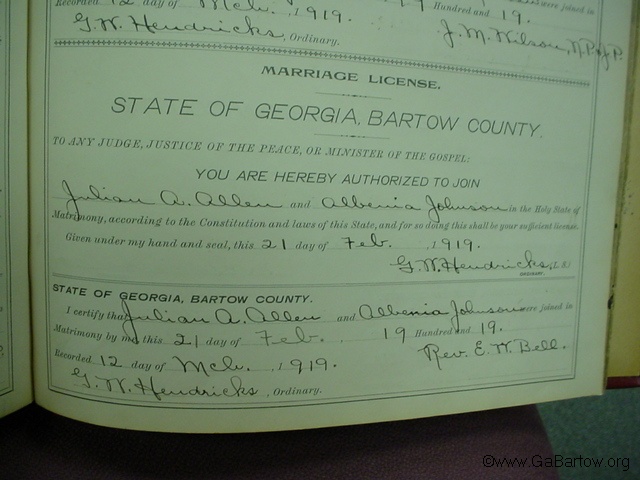 Recorded 12 day of Mch. , 1919. Hundred and 19.
G. W. Hendricks, Ordinary. J. M. Wilson, N.P. & J.P.
MARRIAGE LICENSE.
STATE OF GEORGIA, BARTOW COUNTY.
TO ANY JUDGE, JUSTICE OF THE PEACE, OR MINISTER OF THE GOSPEL:
YOU ARE HEREBY AUTHORIZED TO JOIN
Julian A. Allen and Albenia Johnson in the Holy State of
Matrimony, according to the Constitution and laws of this State, and for so doing this shall be your sufficient license.
Given under my hand and seal, this 21 day of Feb. , 1919.
G. W. Hendricks, (L. S.)
ORDINARY.
STATE OF GEORGIA, BARTOW COUNTY.
I certify that Julian A. Allen and Albenia Johnson were joined in
Matrimony by me this 21 day of Feb. 19 Hundred and 19.
Recorded 12 day of Mch. , 1919. Rev. E. W. Bell.
G. W. Hendricks , Ordinary.
©www.GaBartow.org